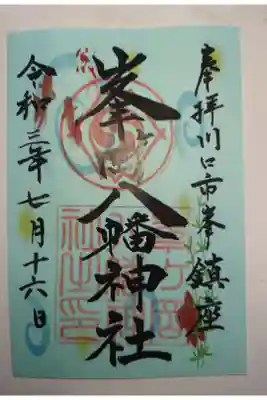 奉拝川口市峯鎮座
峯岡八幡神社
令和三年七月十六日